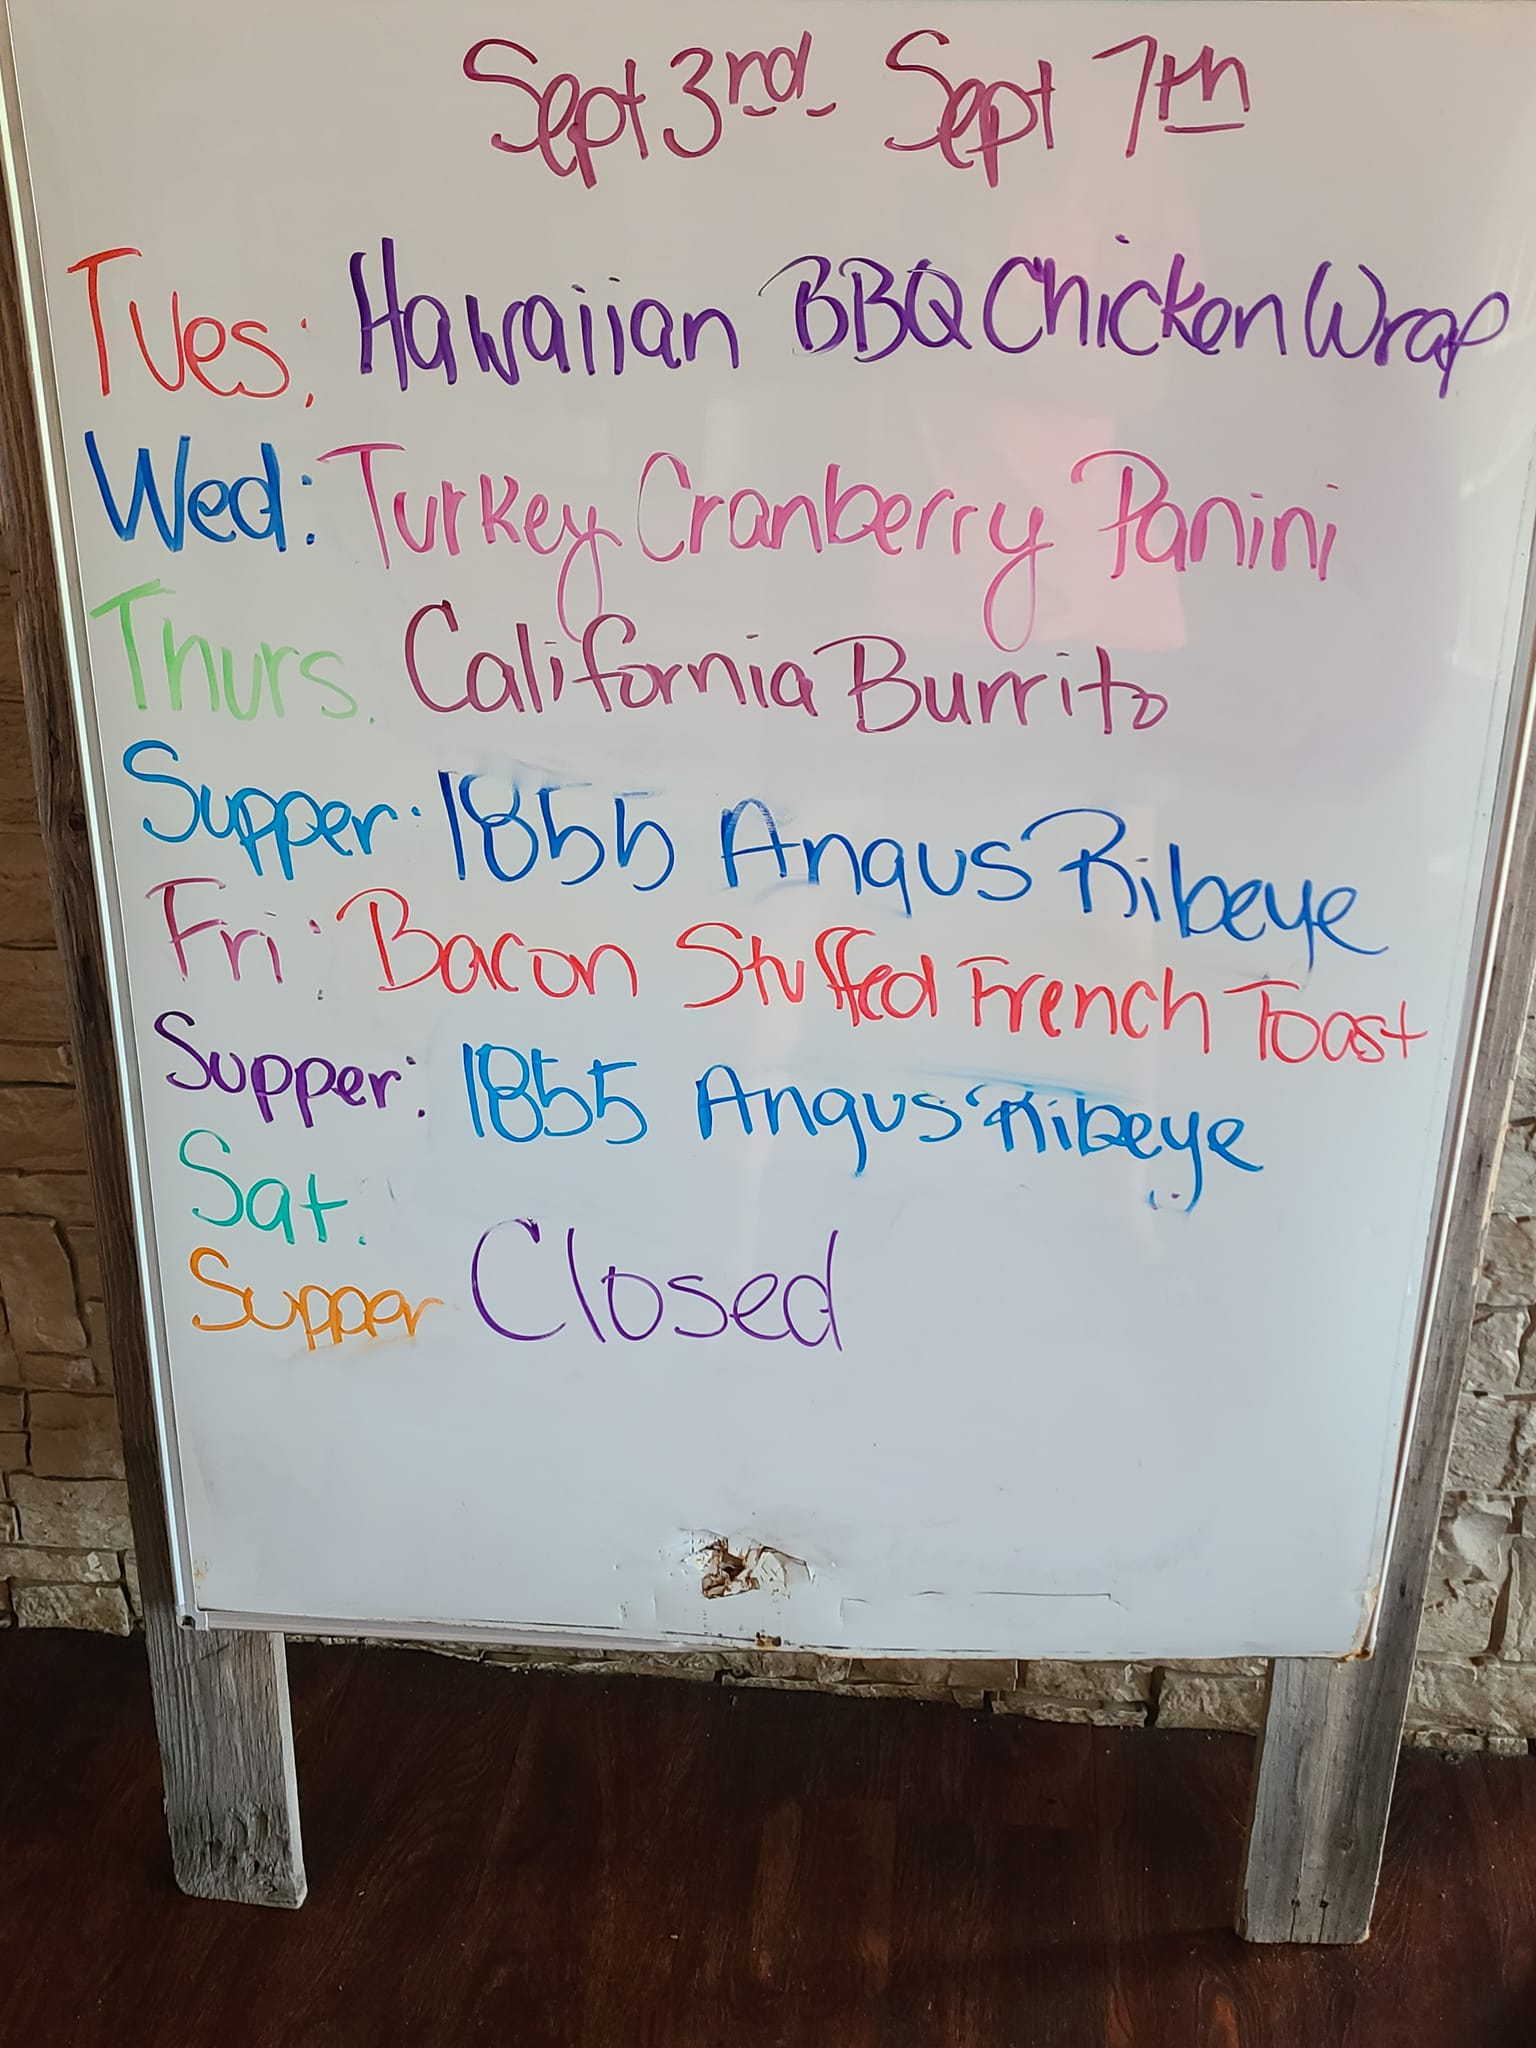 Sept 3rd - Sept 7th
Tues: Hawaiian BBQ Chicken Wrap
Wed: Turkey Cranberry Panini
Thurs. California Burrito
Supper: 1855 Angus Ribeye
Fri: Bacon Stuffed French Toast
Supper: 1855 Angus Ribeye
Sat.
Supper Closed